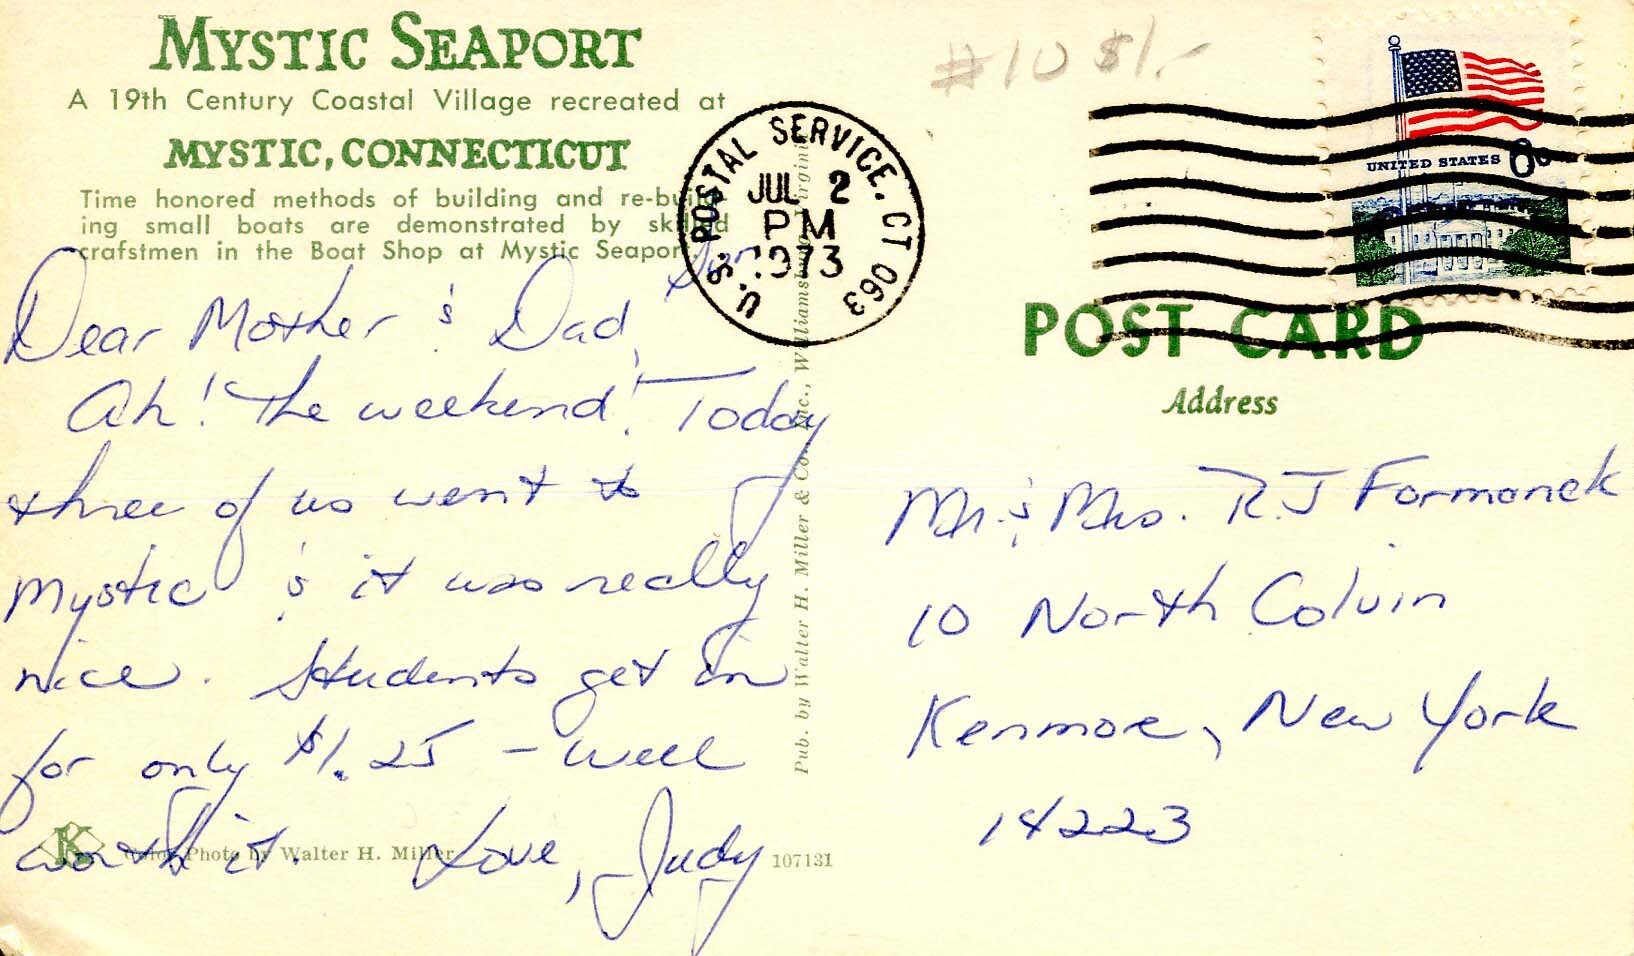 MYSTIC SEAPORT
A 19th Century Coastal Village recreated at
MYSTIC, CONNECTICUT
Time honored methods of building and re-build-
ing small boats are demonstrated by skilled
crafstmen in the Boat Shop at Mystic Seaport.
Sun
Dear Mother & Dad,
Ah! The weekend! Today
three of us went to
Mystic & it was really
nice. Students get in
for only $1.25 – well
worth it. Love, Judy
K
Color Photo by Walter H. Miller
107131
Pub. by Walter H. Miller & Co., Inc., Williamsburg, Virginia
U.S. POSTAL SERVICE. CT 063
JUL 2
PM
1973
#10 $1.-
UNITED STATES 8c
POST CARD
Address
Mr. & Mrs. R.J Formanek
10 North Colvin
Kenmore, New York
14223